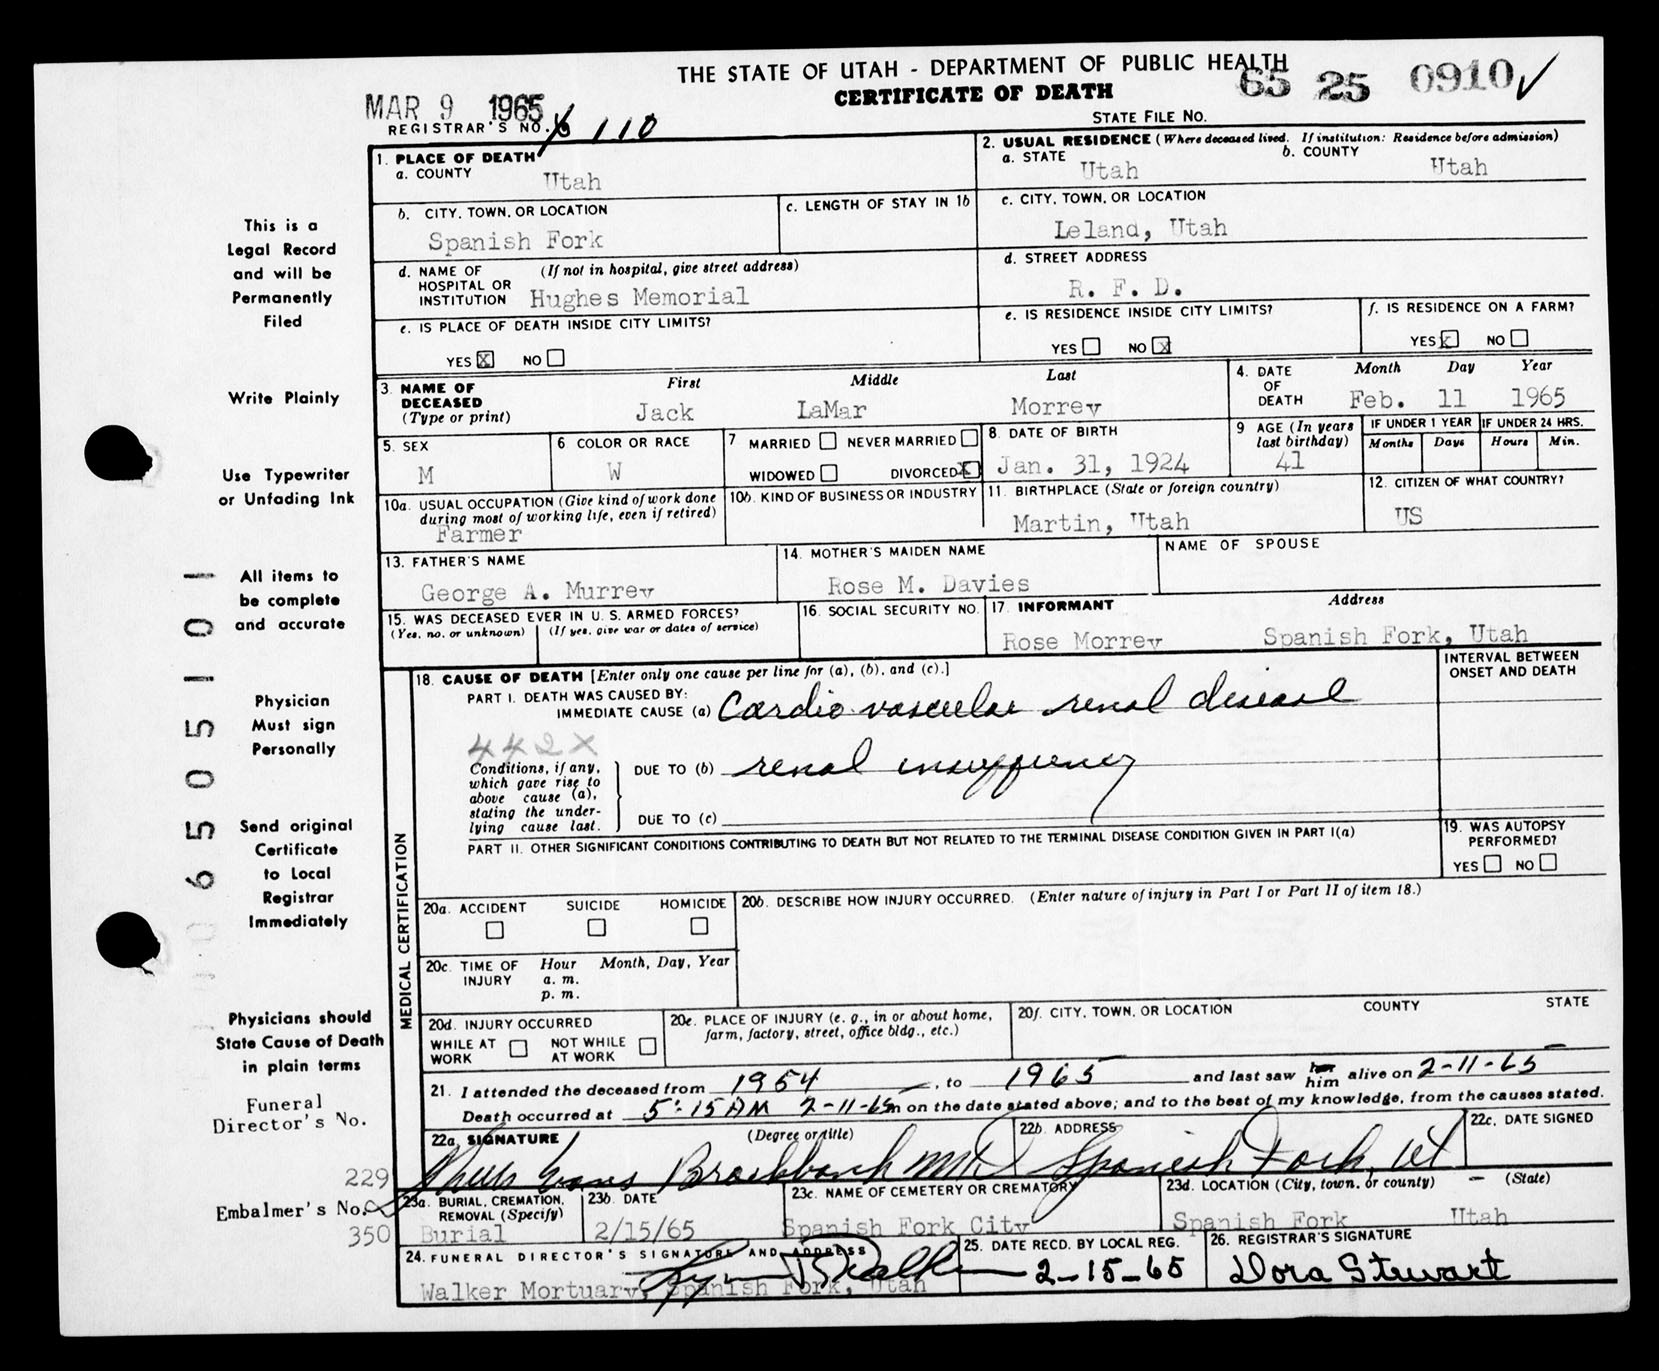 THE STATE OF UTAH - DEPARTMENT OF PUBLIC HEALTH
CERTIFICATE OF DEATH
65 25 0910 ✓
STATE FILE NO.
MAR 9 1965
REGISTRAR'S NO. 110
This is a
Legal Record
and will be
Permanently
Filed
Write Plainly
Use Typewriter
or Unfading Ink
All items to
be complete
and accurate
Physician
Must sign
Personally
Send original
Certificate
to Local
Registrar
Immediately
Physicians should
State Cause of Death
in plain terms
Funeral
Director's No.
229
Embalmer's No.
350
1. PLACE OF DEATH
a. COUNTY
Utah
2. USUAL RESIDENCE (Where deceased lived. If institution: Residence before admission)
a. STATE
Utah
b. COUNTY
Utah
b. CITY, TOWN, OR LOCATION
Spanish Fork
c. LENGTH OF STAY IN 1b
c. CITY, TOWN, OR LOCATION
Leland, Utah
d. NAME OF HOSPITAL OR INSTITUTION
(If not in hospital, give street address)
Hughes Memorial
d. STREET ADDRESS
R. F. D.
e. IS PLACE OF DEATH INSIDE CITY LIMITS?
YES X NO
e. IS RESIDENCE INSIDE CITY LIMITS?
YES NO X
f. IS RESIDENCE ON A FARM?
YES X NO
3. NAME OF DECEASED
(Type or print)
First Middle Last
Jack LaMar Morrey
4. DATE OF DEATH
Month Day Year
Feb. 11 1965
5. SEX
M
6 COLOR OR RACE
W
7 MARRIED NEVER MARRIED
WIDOWED DIVORCED X
8. DATE OF BIRTH
Jan. 31, 1924
9 AGE (In years last birthday)
41
IF UNDER 1 YEAR
Months Days
IF UNDER 24 HRS.
Hours Min.
10a. USUAL OCCUPATION (Give kind of work done during most of working life, even if retired)
Farmer
10b. KIND OF BUSINESS OR INDUSTRY
11. BIRTHPLACE (State or foreign country)
Martin, Utah
12. CITIZEN OF WHAT COUNTRY?
US
13. FATHER'S NAME
George A. Murrey
14. MOTHER'S MAIDEN NAME
Rose M. Davies
NAME OF SPOUSE
15. WAS DECEASED EVER IN U. S. ARMED FORCES?
(Yes, no, or unknown) (If yes, give war or dates of service)
16. SOCIAL SECURITY NO.
17. INFORMANT Address
Rose Morrey Spanish Fork, Utah
MEDICAL CERTIFICATION
18. CAUSE OF DEATH [Enter only one cause per line for (a), (b), and (c).]
INTERVAL BETWEEN ONSET AND DEATH
PART I. DEATH WAS CAUSED BY:
IMMEDIATE CAUSE (a) Cardio-vascular renal disease
442X
Conditions, if any, which gave rise to above cause (a), stating the underlying cause last.
DUE TO (b) renal insufficiency
DUE TO (c)
PART II. OTHER SIGNIFICANT CONDITIONS CONTRIBUTING TO DEATH BUT NOT RELATED TO THE TERMINAL DISEASE CONDITION GIVEN IN PART I(a)
19. WAS AUTOPSY PERFORMED?
YES NO
20a. ACCIDENT SUICIDE HOMICIDE
20b. DESCRIBE HOW INJURY OCCURRED. (Enter nature of injury in Part I or Part II of item 18.)
20c. TIME OF INJURY
Hour Month, Day, Year
a. m.
p. m.
20d. INJURY OCCURRED
WHILE AT WORK NOT WHILE AT WORK
20e. PLACE OF INJURY (e. g., in or about home, farm, factory, street, office bldg., etc.)
20f. CITY, TOWN, OR LOCATION COUNTY STATE
21. I attended the deceased from 1954, to 1965 and last saw him alive on 2-11-65
Death occurred at 5:15 AM 2-11-65 m on the date stated above; and to the best of my knowledge, from the causes stated.
22a. SIGNATURE (Degree or title)
Evans Brockbank MD
22b. ADDRESS
Spanish Fork, Ut
22c. DATE SIGNED
23a. BURIAL, CREMATION, REMOVAL (Specify)
Burial
23b. DATE
2/15/65
23c. NAME OF CEMETERY OR CREMATORY
Spanish Fork City
23d. LOCATION (City, town, or county) (State)
Spanish Fork Utah
24. FUNERAL DIRECTOR'S SIGNATURE AND ADDRESS
Walker Mortuary, Spanish Fork, Utah
25. DATE RECD. BY LOCAL REG.
2-15-65
26. REGISTRAR'S SIGNATURE
Dora Stewart